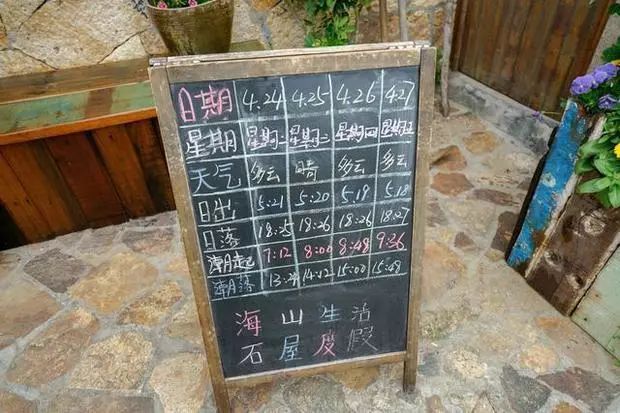 日期 4.24 4.25 4.26 4.27
星期 星期二 星期三 星期四 星期五
天气 多云 晴 多云 多云
日出 5:21 5:20 5.19 5.18
日落 18:25 18:26 18:26 18:27
潮起 7:12 8:00 8:48 9:36
潮落 13:24 14:12 15:00 15:48
海山生活
石屋度假